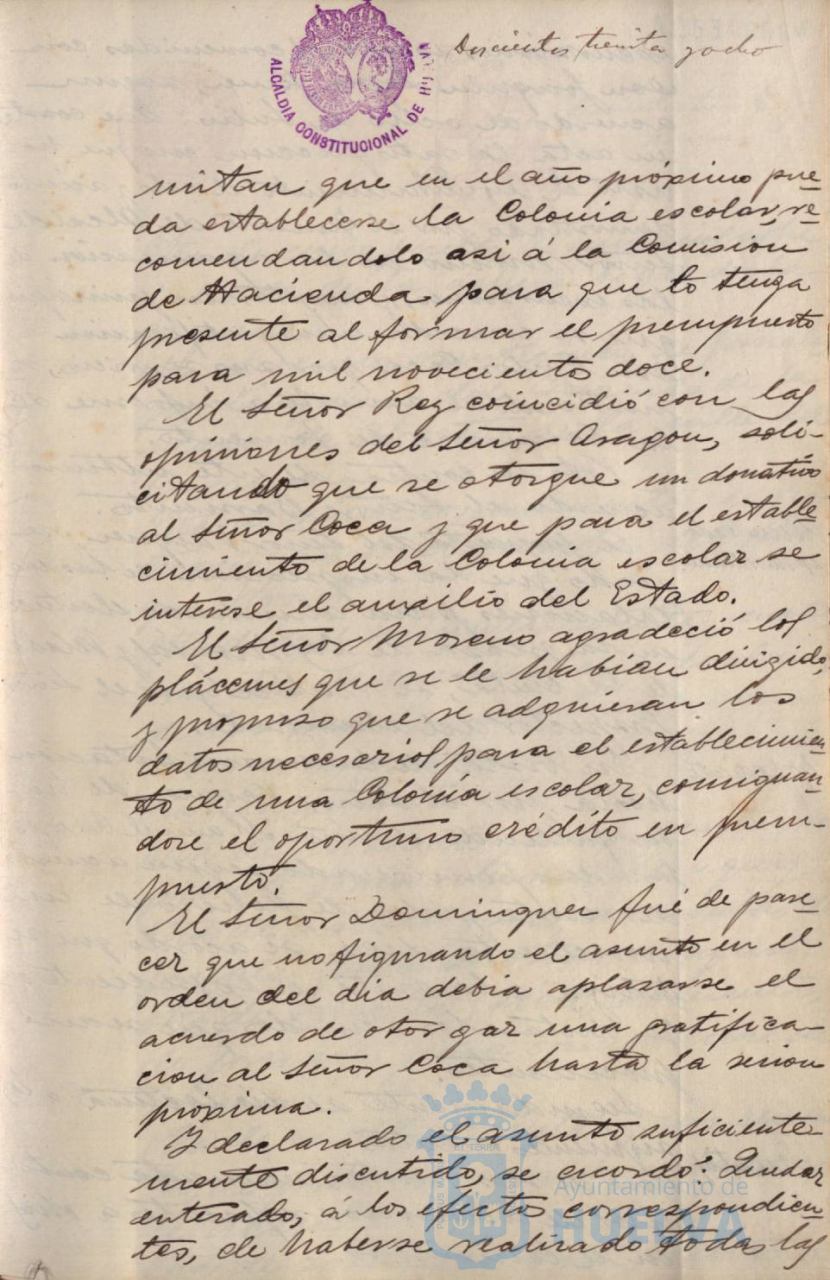 Doscientos treinta y ocho
ALCALDIA CONSTITUCIONAL DE HUELVA
mitan que en el año próximo pue-
da establecerse la Colonia escolar, re-
comendandolo asi á la Comision
de Hacienda para que lo tenga
presente al formar el presupuesto
para mil noveciento doce.
El Señor Rey coincidió con las
opiniones del Señor Aragon, soli-
citando que se otorgue un donativo
al Señor Coca y que para el estable-
cimiento de la Colonia escolar se
interese el auxilio del Estado.
El Señor Moreno agradeció los
plácemes que se le habian dirigido,
y propuso que se adquieran los
datos necesarios para el establecimien-
to de una Colonia escolar, consignan-
dose el oportuno crédito en presu-
puesto.
El Señor Dominguez fué de pare-
cer que no figurando el asunto en el
orden del dia debia aplazarse el
acuerdo de otorgar una gratifica-
cion al Señor Coca hasta la sesion
próxima.
Y declarado el asunto suficiente-
mente discutido, se acordó: Quedar
enterado, á los efectos correspondien-
tes, de haberse realizado todas las
Ayuntamiento de
HUELVA